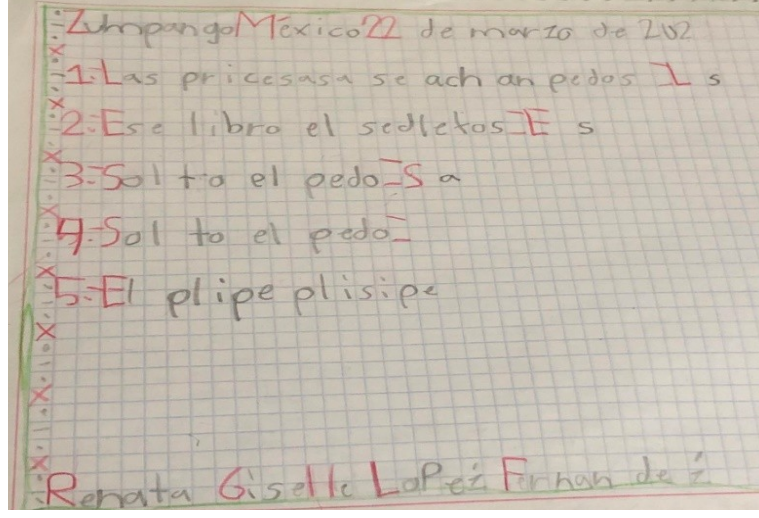 Zumpango México 22 de marzo de 202
1.-Las pricesasa se ach an pedos I s
2.-Ese libro el sedletos=E s
3.-Sol to el pedo=S a
4.-Sol to el pedo=
5.-El plipe plisipe
Renata Giselle LoPez Fernan de z